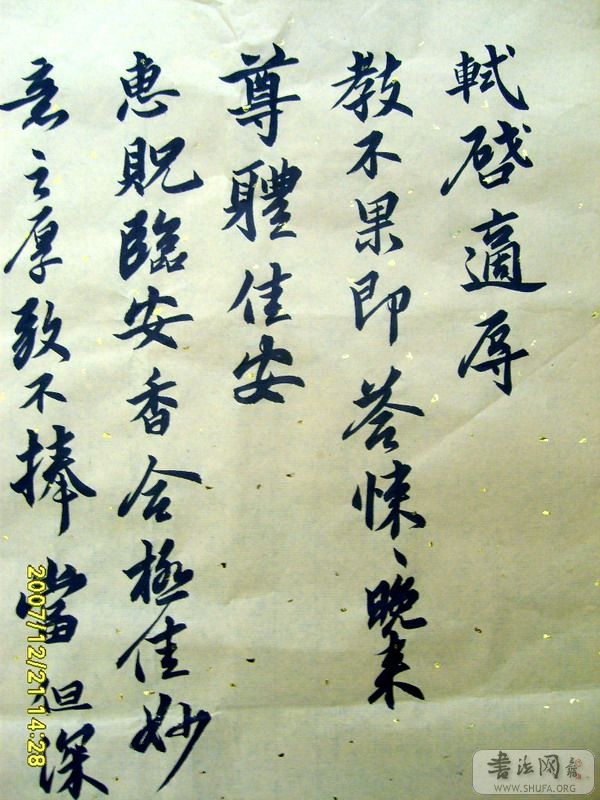 軾啓適辱
教不果即荅悚〻晚来
尊體佳安
惠貺臨安香合極佳妙
意之厚敢不捧當但深
2007/12/21 14:28
書法网
WWW.SHUFA.ORG